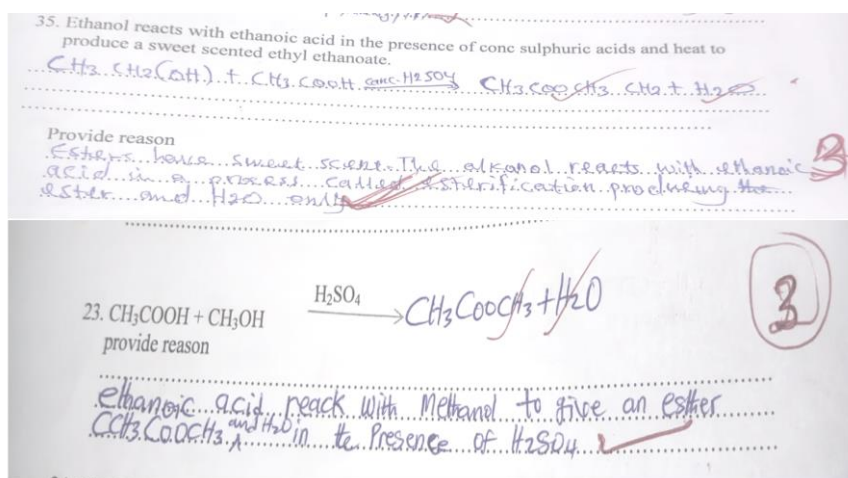 35. Ethanol reacts with ethanoic acid in the presence of conc sulphuric acids and heat to
produce a sweet scented ethyl ethanoate.
CH3 CH2(OH) + CH3 COOH conc. H2SO4 → CH3COOCH3 CH2 + H2O
Provide reason
Esters have sweet scient. The alkanol reacts with ethanoic
acid in a process called esterification producing the
ester and H2O only
3
23. CH₃COOH + CH₃OH H₂SO₄ → CH3COOCH3 + H2O
3
provide reason
ethanoic acid reack with Methanol to give an esther
CCH3.COOCH3 and H2O in te Presence of H2SO4